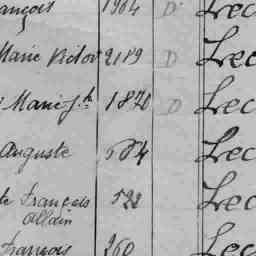 ançois 1904 D Lec
Marie Victor 2119 D Lec
Marie Jh 1870 D Lec
Auguste 584 Lec
François 522 Lec
Allain
François 260 Lec